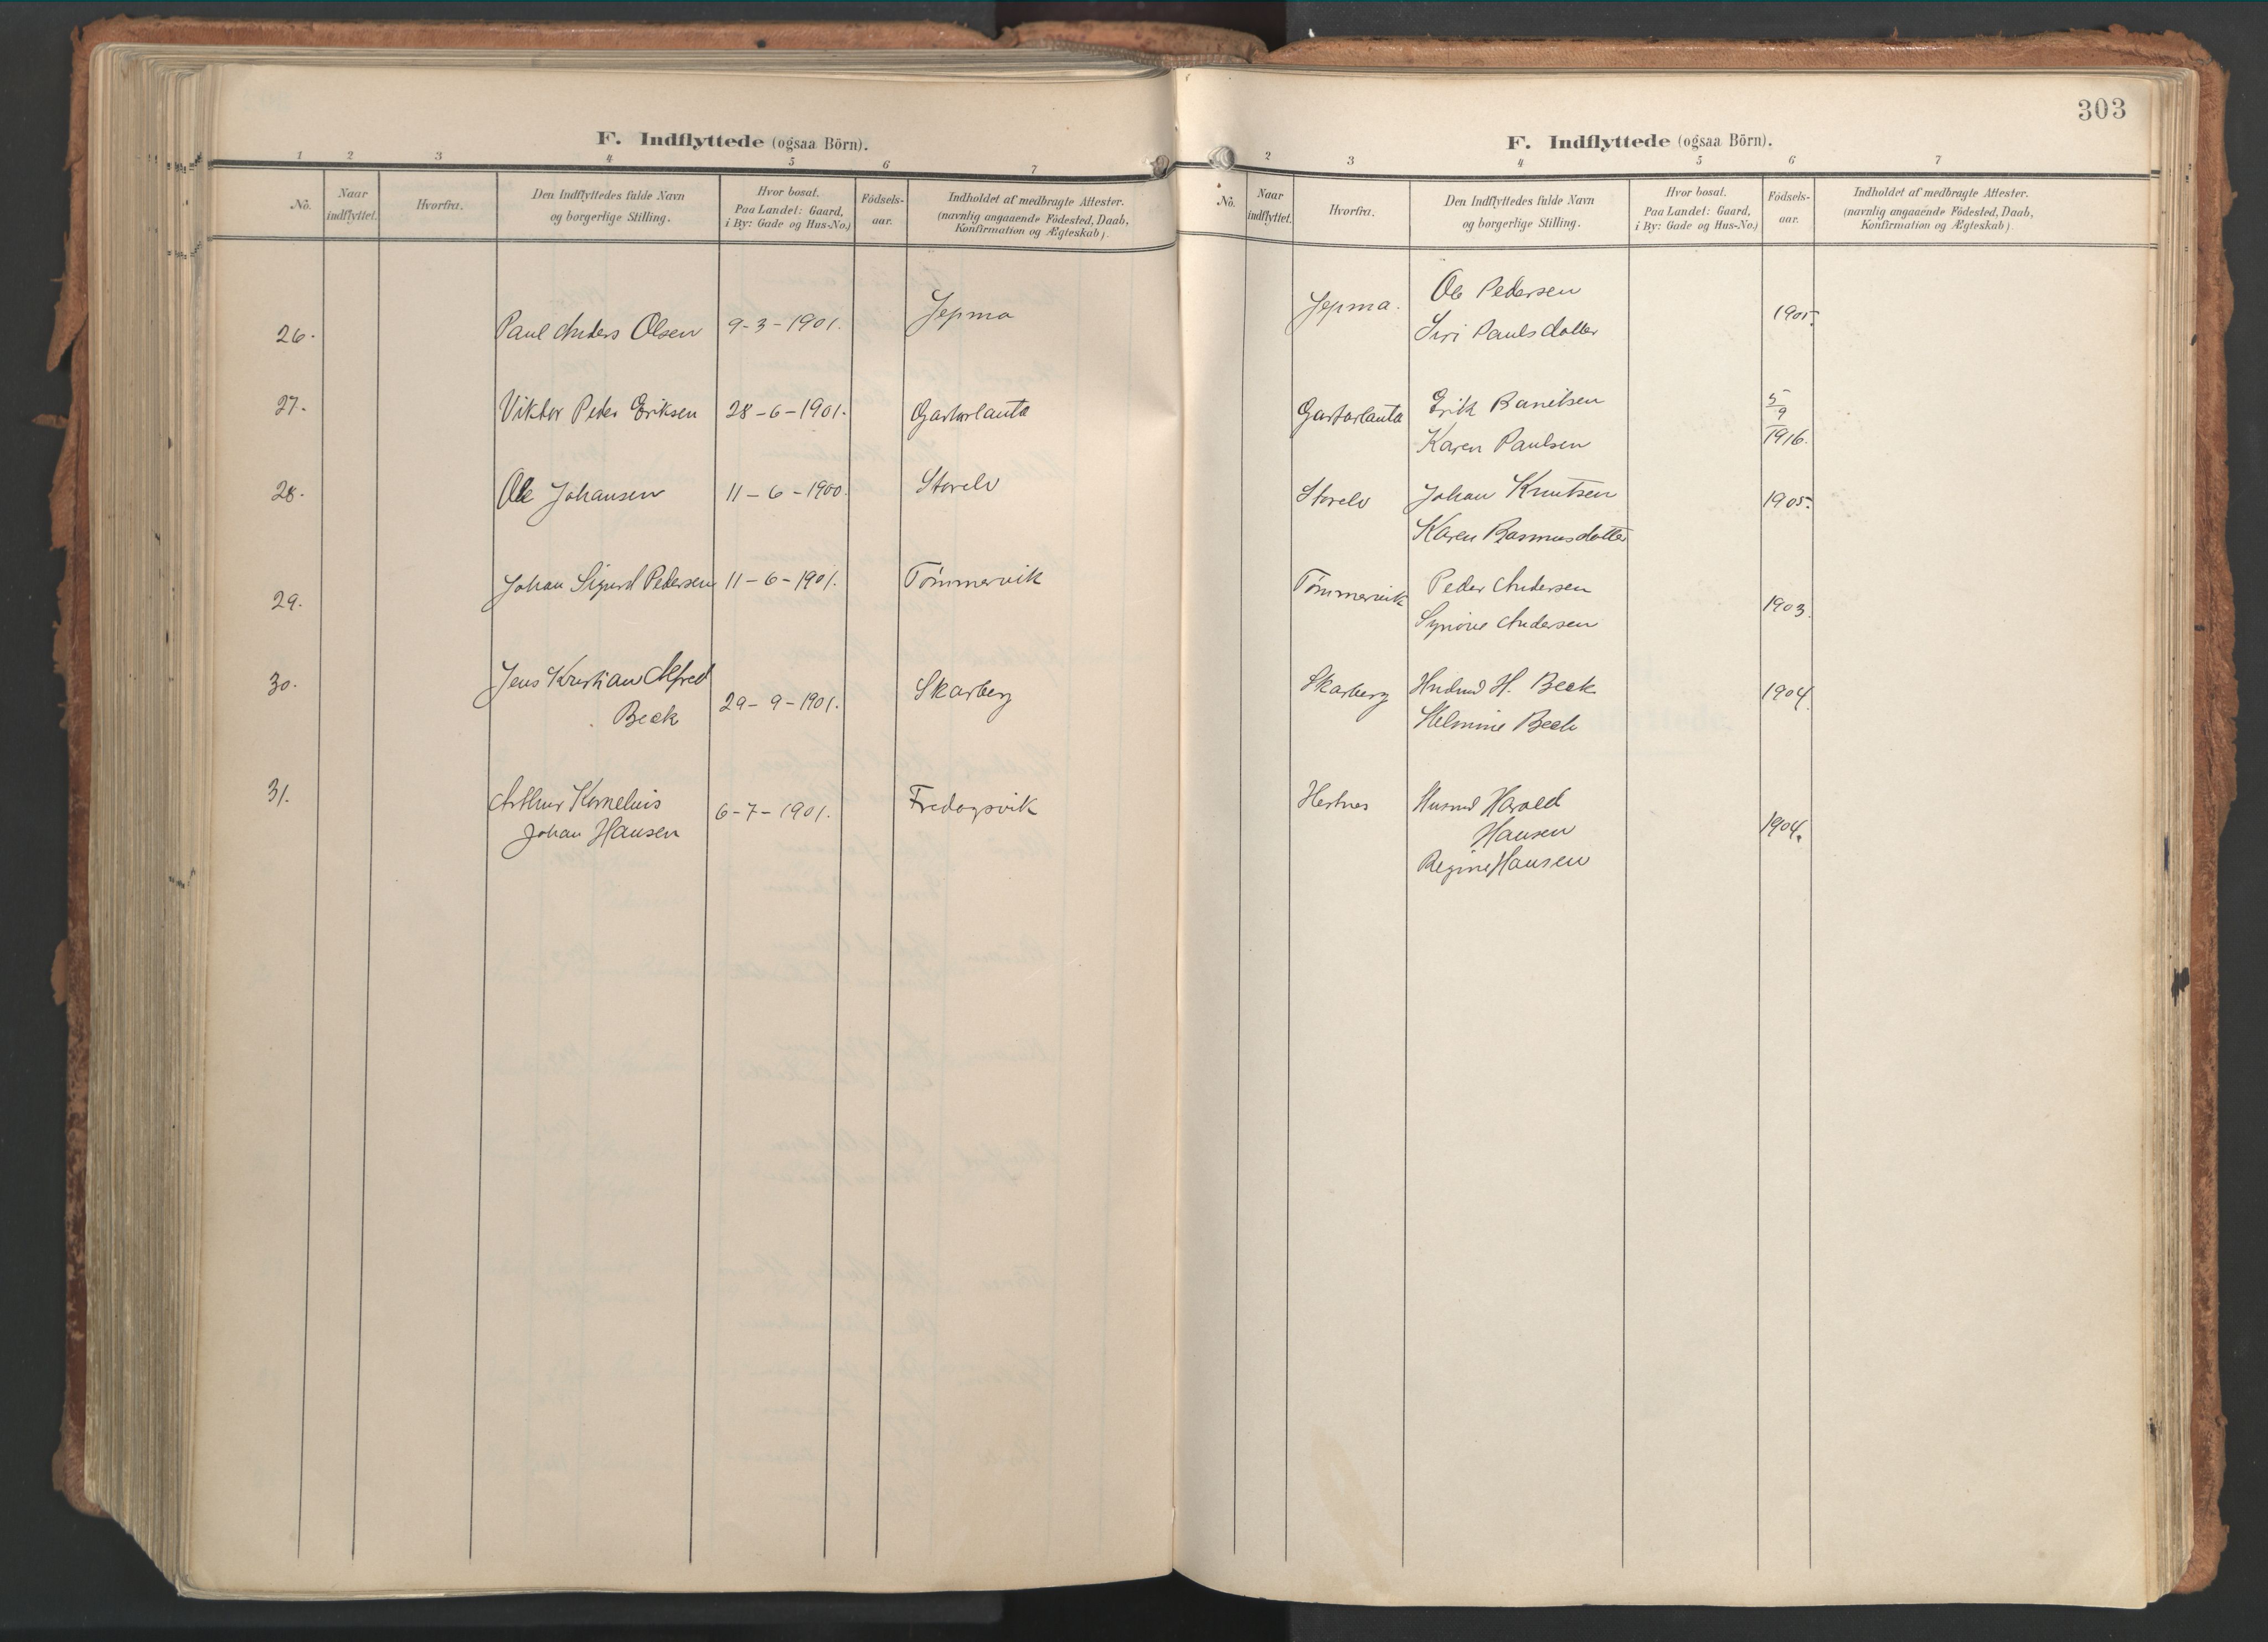 F. Indflyttede (ogsaa Börn).
1 2 3 4 5 6 7
No.
Naar indflyttet.
Hvorfra.
Den Indflyttedes fulde Navn
og borgerlige Stilling.
Hvor bosat.
Paa Landet: Gaard,
i By: Gade og Hus-No.)
Födsels-
aar.
Indholdet af medbragte Attester.
(navnlig angaaende Födested, Daab,
Konfirmation og Ægteskab).
26. Paul Anders Olsen 9-3-1901. Jepma
27. Viktor Peder Eriksen 28-6-1901. Gastorlauta
28. Ole Johansen 11-6-1900. Storelv
29. Johan Sigurd Pedersen 11-6-1901. Tømmervik
30. Jens Kristian Alfred
Beck 29-9-1901. Skarberg
31. Arthur Kornelius
Johan Hansen 6-7-1901. Fredagsvik
303
F. Indflyttede (ogsaa Börn).
2 3 4 5 6 7
No.
Naar
indflyttet.
Hvorfra.
Den Indflyttedes fulde Navn
og borgerlige Stilling.
Hvor bosat.
Paa Landet: Gaard,
i By: Gade og Hus-No.)
Födsels-
aar.
Indholdet af medbragte Attester.
(navnlig angaaende Födested, Daab,
Konfirmation og Ægteskab).
Jepma. Ole Pedersen
Siri Paulsdatter
Gastorlauta Erik
Karen Paulsen
5/9
1916.
Storelv Johan Knutsen 1905.
Karen Rasmusdatter
Tømmervik Peder Andersen 1903.
Andersen
Skarberg H. Beck 1904.
Beck
Harald
Hansen 1904.
Regine Hansen